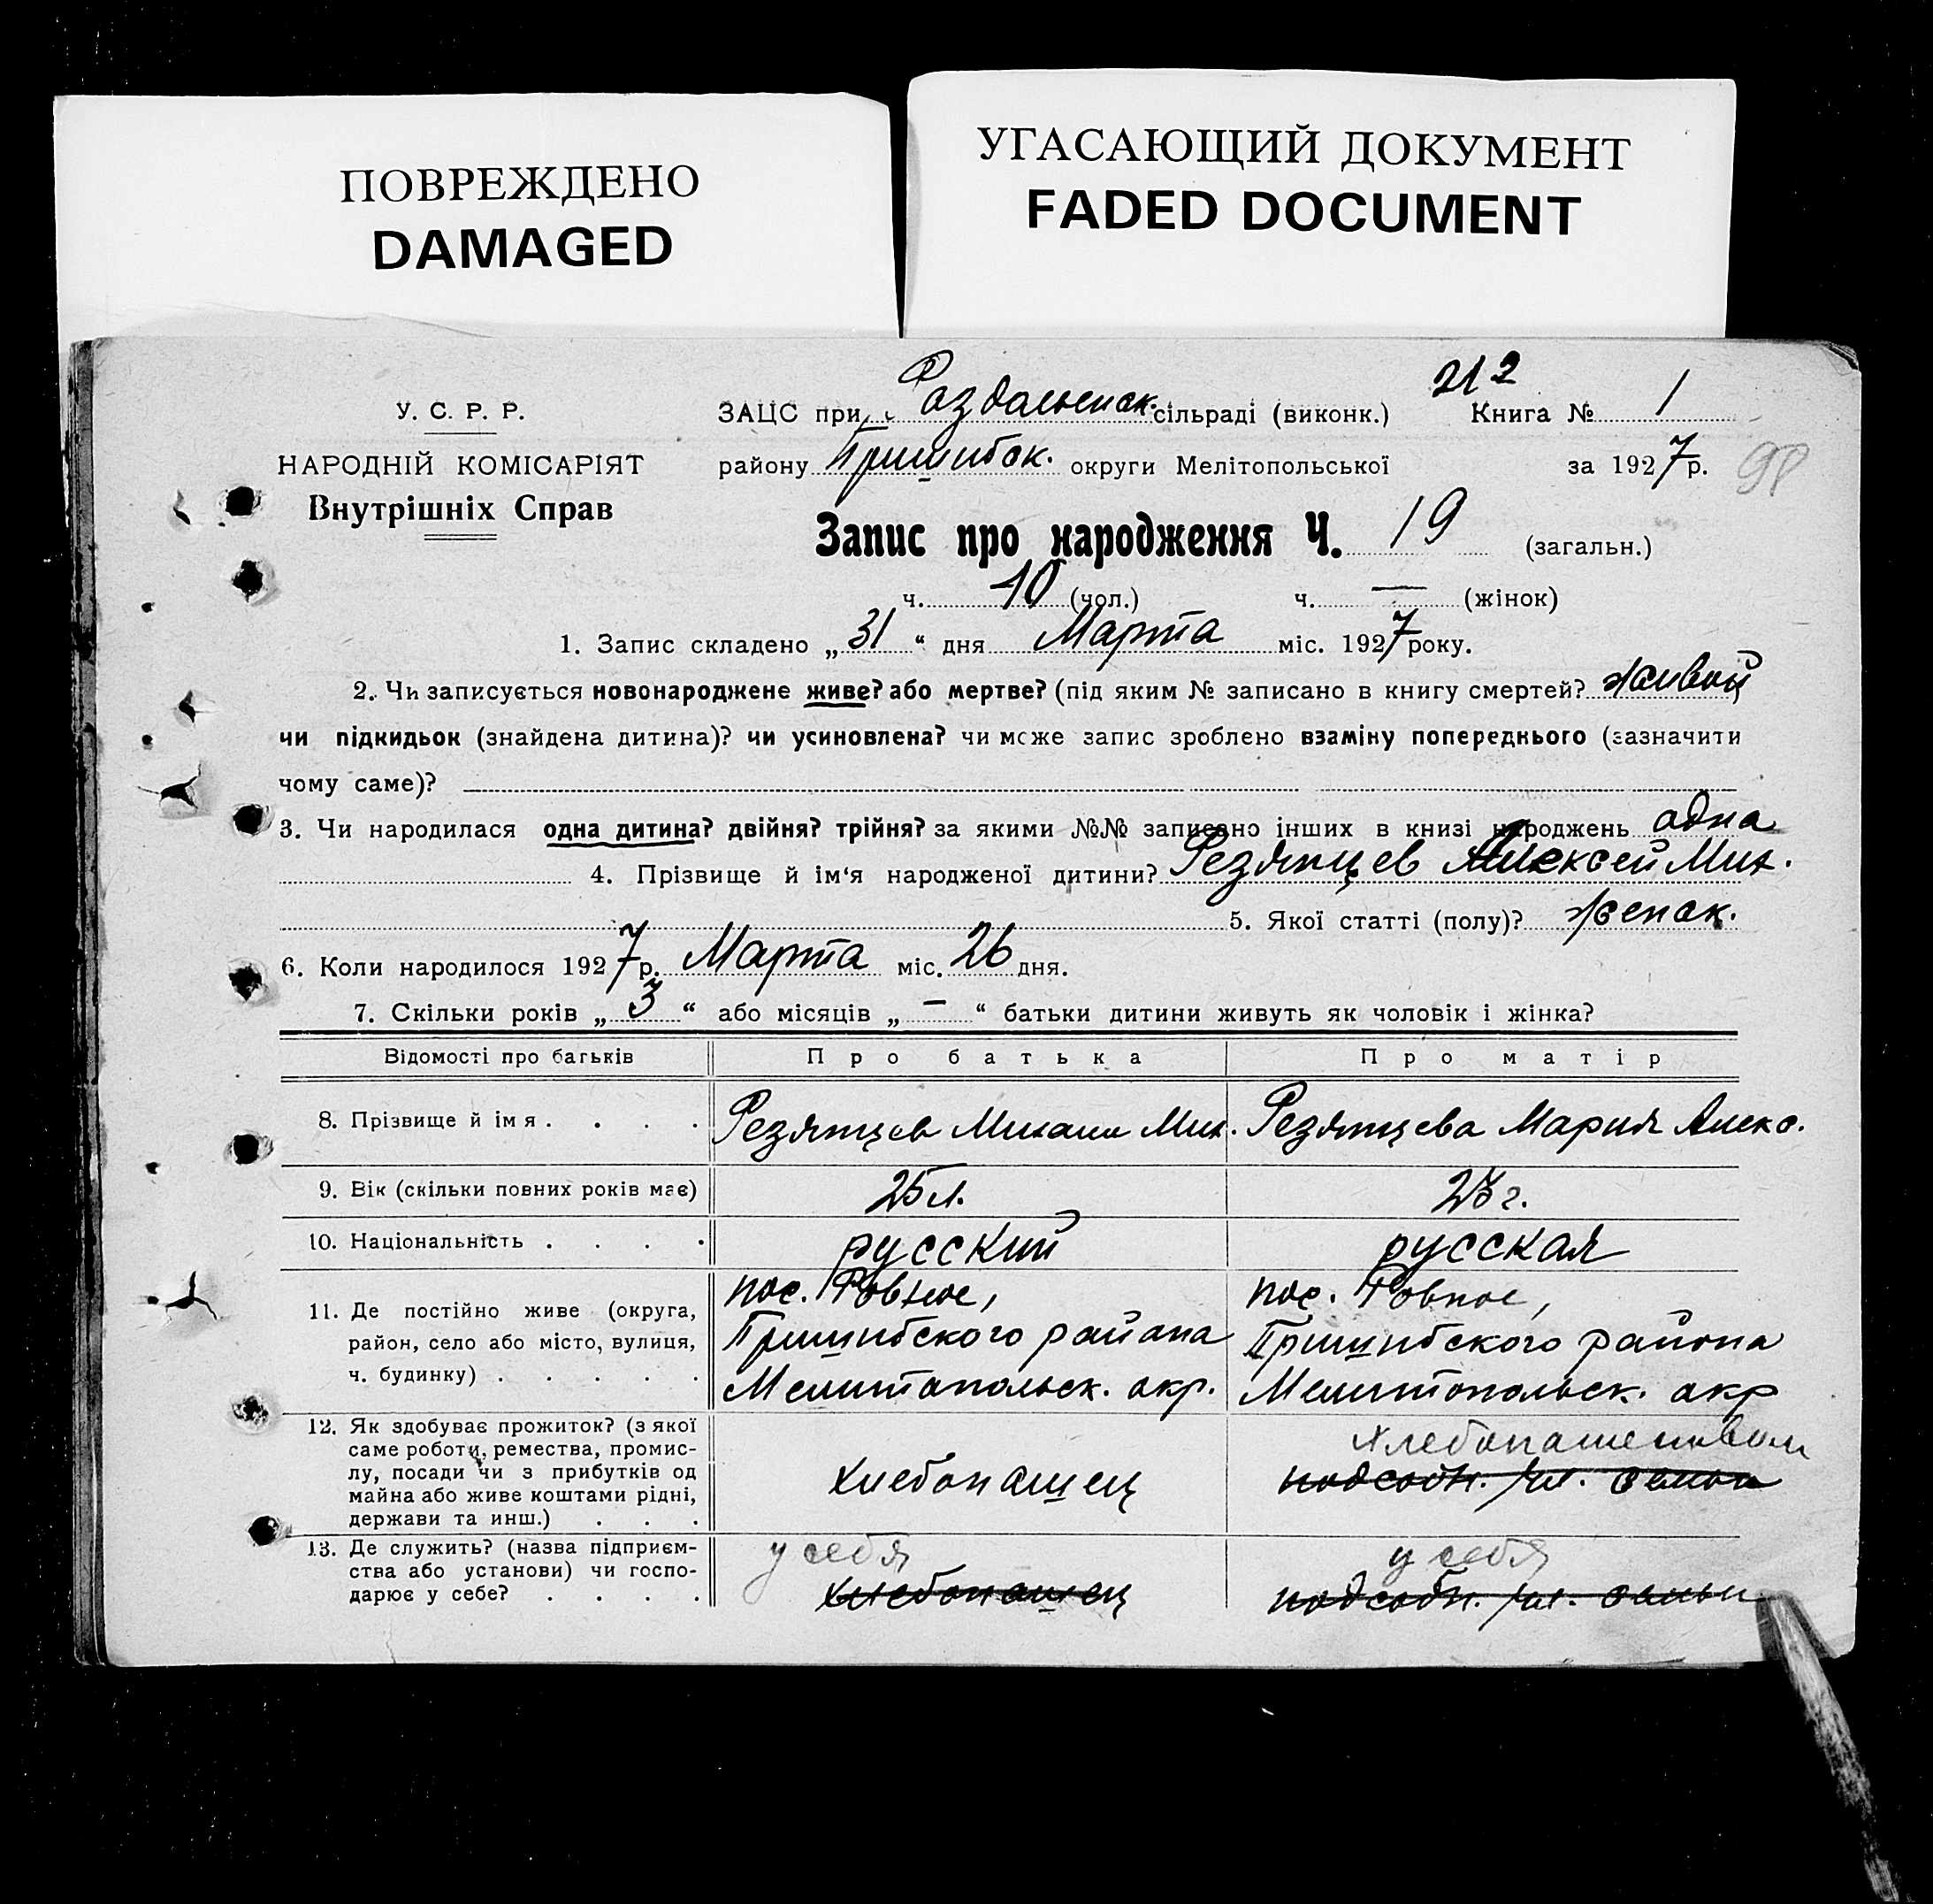 ПОВРЕЖДЕНО
DAMAGED
УГАСАЮЩИЙ ДОКУМЕНТ
FADED DOCUMENT
212
У. С. Р. Р.
ЗАЦС при Раздольенск. сільраді (виконк.) Книга № 1
НАРОДНІЙ КОМІСАРІЯТ
району Пришибск. округи Мелітопольської за 1927 р. 98
Внутрішніх Справ
Запис про народження Ч. 19 (загальн.)
ч. 10 (чол.) ч. — (жінок)
1. Запис складено „31“ дня Марта міс. 1927 року.
2. Чи записується новонароджене живе? або мертве? (під яким № записано в книгу смертей? живой
чи підкидьок (знайдена дитина)? чи усиновлена? чи може запис зроблено взаміну попереднього (зазначити
чому саме)?
3. Чи народилася одна дитина? двійня? трійня? за якими №№ записано інших в книзі народжень одна
4. Прізвище й ім‘я народженої дитини? Резятцев Алексей Мих.
5. Якої статті (полу)? женск.
6. Коли народилося 1927 р. Марта міс. 26 дня.
7. Скільки років „3“ або місяців „—“ батьки дитини живуть як чоловік і жінка?
Відомості про батьків Про батька Про матір
8. Прізвище й імя . . . . Резятцев Михаил Мих. Резятцева Мария Алекс.
9. Вік (скільки повних років має) 25 л. 23 г.
10. Національність . . . . русский русская
11. Де постійно живе (округа,
район, село або місто, вулиця,
ч. будинку) . . . . .
пос. Ровное,
Пришибского района
Мелитопольск. окр.
пос. Ровное,
Пришибского района
Мелитопольск. окр
12. Як здобуває прожиток? (з якої
саме роботи, ремества, промис-
лу, посади чи з прибутків од
майна або живе коштами рідні,
держави та инш.) . . .
хлебопашец
хлебопашеством
13. Де служить? (назва підприєм-
ства або установи) чи госпо-
дарює у себе? . . . .
у себя
хлебопашец
у себя